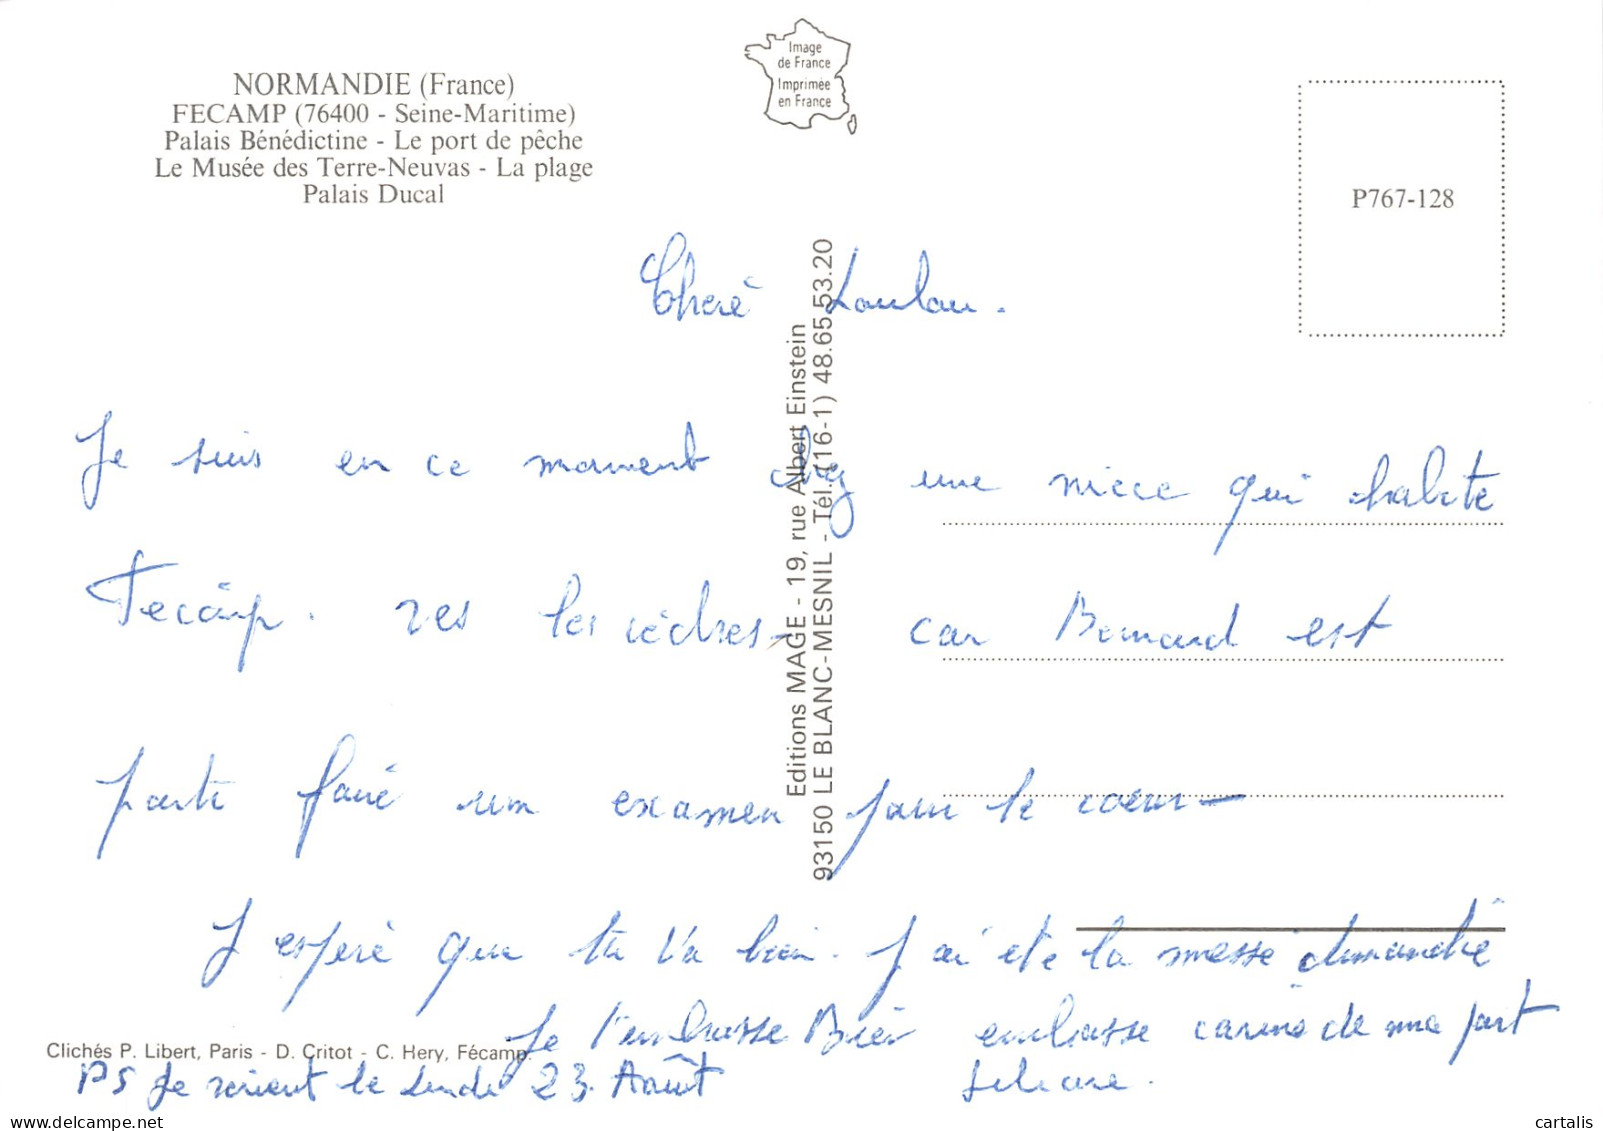 NORMANDIE (France)
FECAMP (76400 - Seine-Maritime)
Palais Bénédictine - Le port de pêche
Le Musée des Terre-Neuvas - La plage
Palais Ducal
Image
de France
Imprimée
en France
P767-128
Cherè Loulou.
Je suis en ce moment chez une niece qui habite
Fecâmp. car Bernard est
parti fairè um examen pour le coeur—
J esperè que tu va bien. J ai eté la messe dimanche
Je t'embrasse Bien embrasse carine de ma part
PS Je revient le Lundi 23. Août
Editions MAGE - 19, rue Albert Einstein
93150 LE BLANC-MESNIL - Tél. (16-1) 48.65.53.20
Clichés P. Libert, Paris - D. Critot - C. Hery, Fécamp.
cartalis